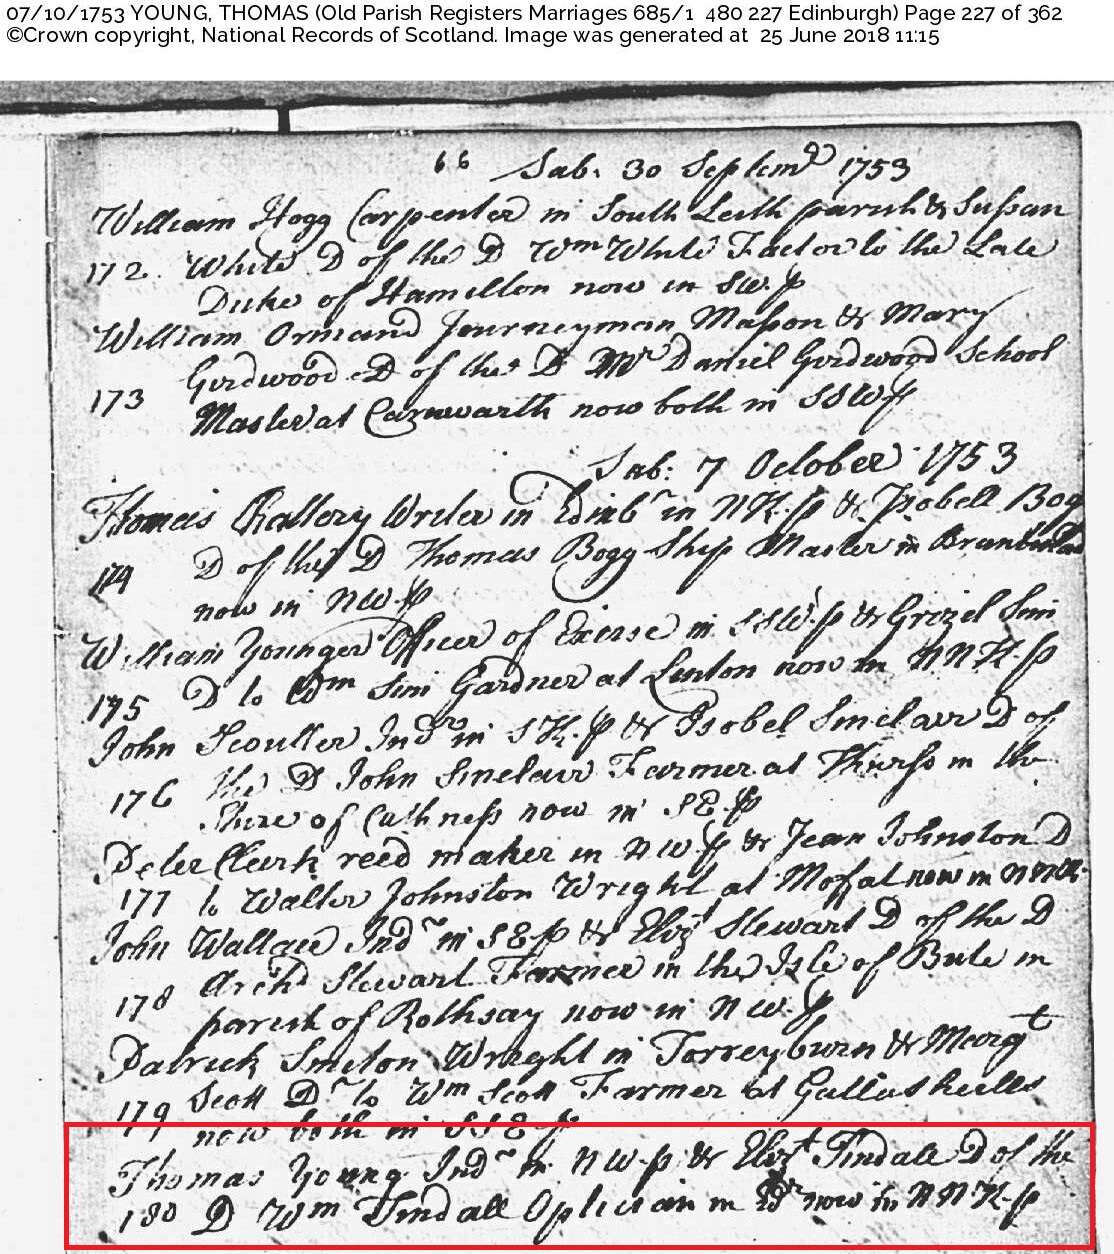 07/10/1753 YOUNG, THOMAS (Old Parish Registers Marriages 685/1 480 227 Edinburgh) Page 227 of 362
©Crown copyright, National Records of Scotland. Image was generated at 25 June 2018 11:15
66 Sab. 30 Septemr 1753
William Hogg Carpenter in South Leith parish & Sussan
172. White D of the D Wm White Factor to the Late
Duke of Hamilton now in SW.p
William Ormand Journeyman Masson & Mary
Girdwood D of the D Mr Daniel Girdwood School
173 Master at Carnwarth now both in SSWp
Sab: 7 October 1753
Thomas Rattery Writer in Edinbr in NK.p & Isobell Bog
174 D of the D Thomas Bogg Ship Master in
now in NW.p
William Younger Officer of Excise in SSW.p & Grizel Sim
175 D to Wm Sim Gardner at Linton now in NNK.p
John Scouller Indr in SK.p & Isobel Sinclair D of
176 the D John Sinclair Farmer at Thurso in the
Shire of Cathness now in SE.p
Peter Clerk reed maker in NW.p & Jean Johnston D
177 to Walter Johnston Wright at Moffat now in NNK.
John Wallace Indr in SE.p & Elizt Stewart D of the D
178 Archd Stewart Farmer in the Isle of Bute in
parish of Rothsay now in NW.p
Patrick Smeton Wright in Torreyburn & Margt
179 Scott Dr to Wm Scott Farmer at Gallasheills
now both in SSE p
Thomas Young Indr in NW.p & Elizt Tindale D of the
180 D Wm Tindall Optician in Edr now in NNK.p